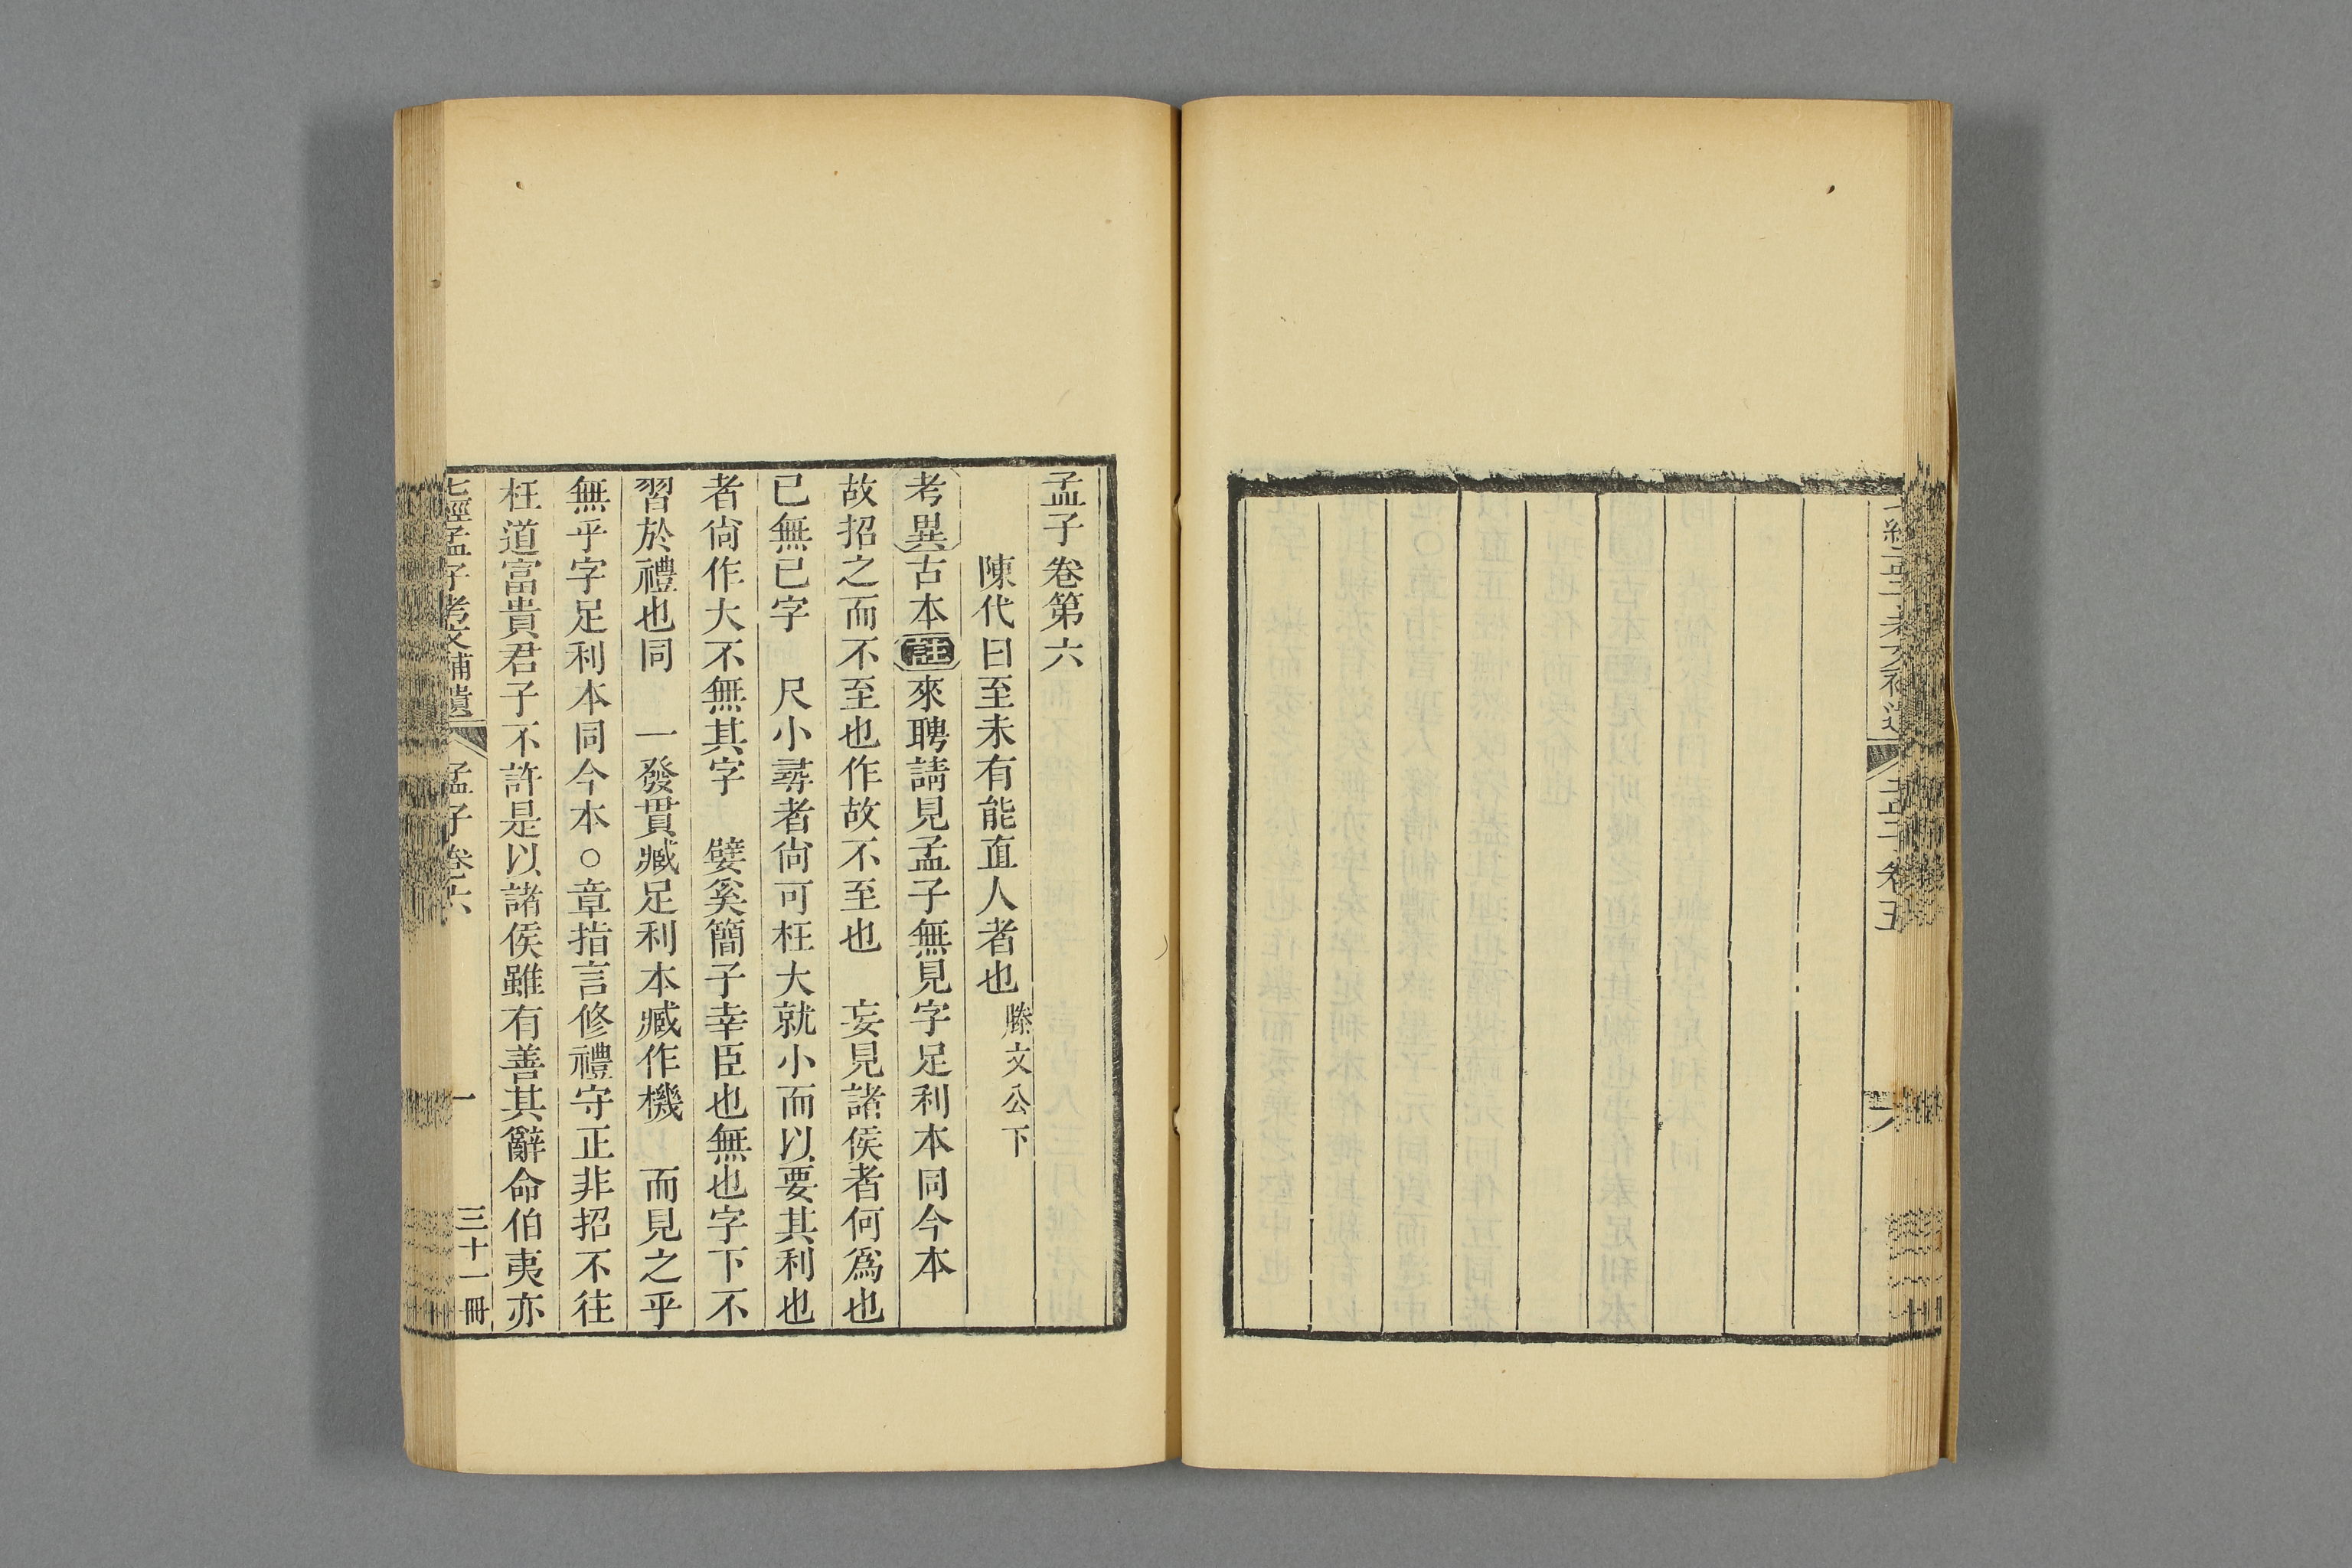 孟子卷五
六
孟子卷第六
陳代曰至未有能直人者也 滕文公下
考異古本註來聘請見孟子無見字足利本同今本
故招之而不至也作故不至也 妄見諸侯者何爲也
已無已字 尺小尋者尙可枉大就小而以要其利也
者尙作大不無其字 嬖奚簡子幸臣也無也字下不
習於禮也同 一發貫臧足利本臧作機 而見之乎
無乎字足利本同今本○章指言修禮守正非招不往
枉道富貴君子不許是以諸侯雖有善其辭命伯夷亦
七經孟子考文補遺 孟子卷六 一 三十一冊